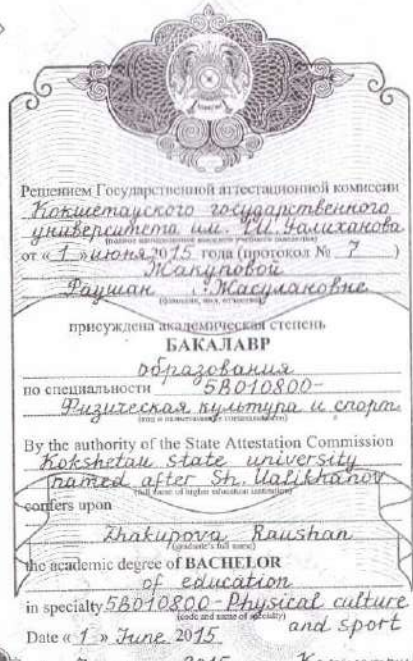 Решением Государственной аттестационной комиссии
Кокшетауского государственного
университета им. Ш. Уалиханова
(полное наименование высшего учебного заведения)
от « 1 » июня 2015 года (протокол № 7 )
Жакуповой
Раушан Жасулановне
(фамилия, имя, отчество)
присуждена академическая степень
БАКАЛАВР
образования
по специальности 5В010800-
Физическая культура и спорт
(код и наименование специальности)
By the authority of the State Attestation Commission
Kokshetau state university
named after Sh. Ualikhanov
(full name of higher education institution)
confers upon
Zhakupova Raushan
(graduate's full name)
the academic degree of BACHELOR
of education
in specialty 5B010800 - Physical culture
(code and name of specialty) and sport
Date « 1 » June 2015
2015